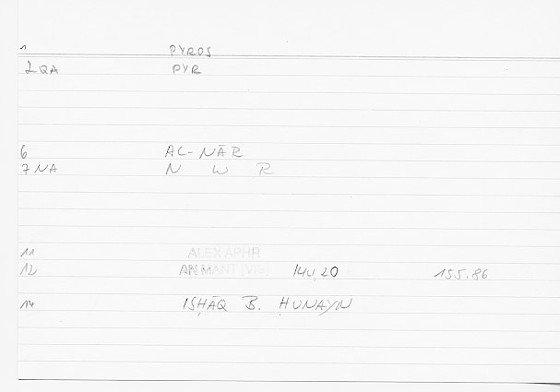 1 PYROS
2QA PYR
6 AL-NĀR
7NA N W R
11 ALEX APHR
12 AN MANT (VIS) 144,20 155.86
14 ISḤĀQ B. ḤUNAYN